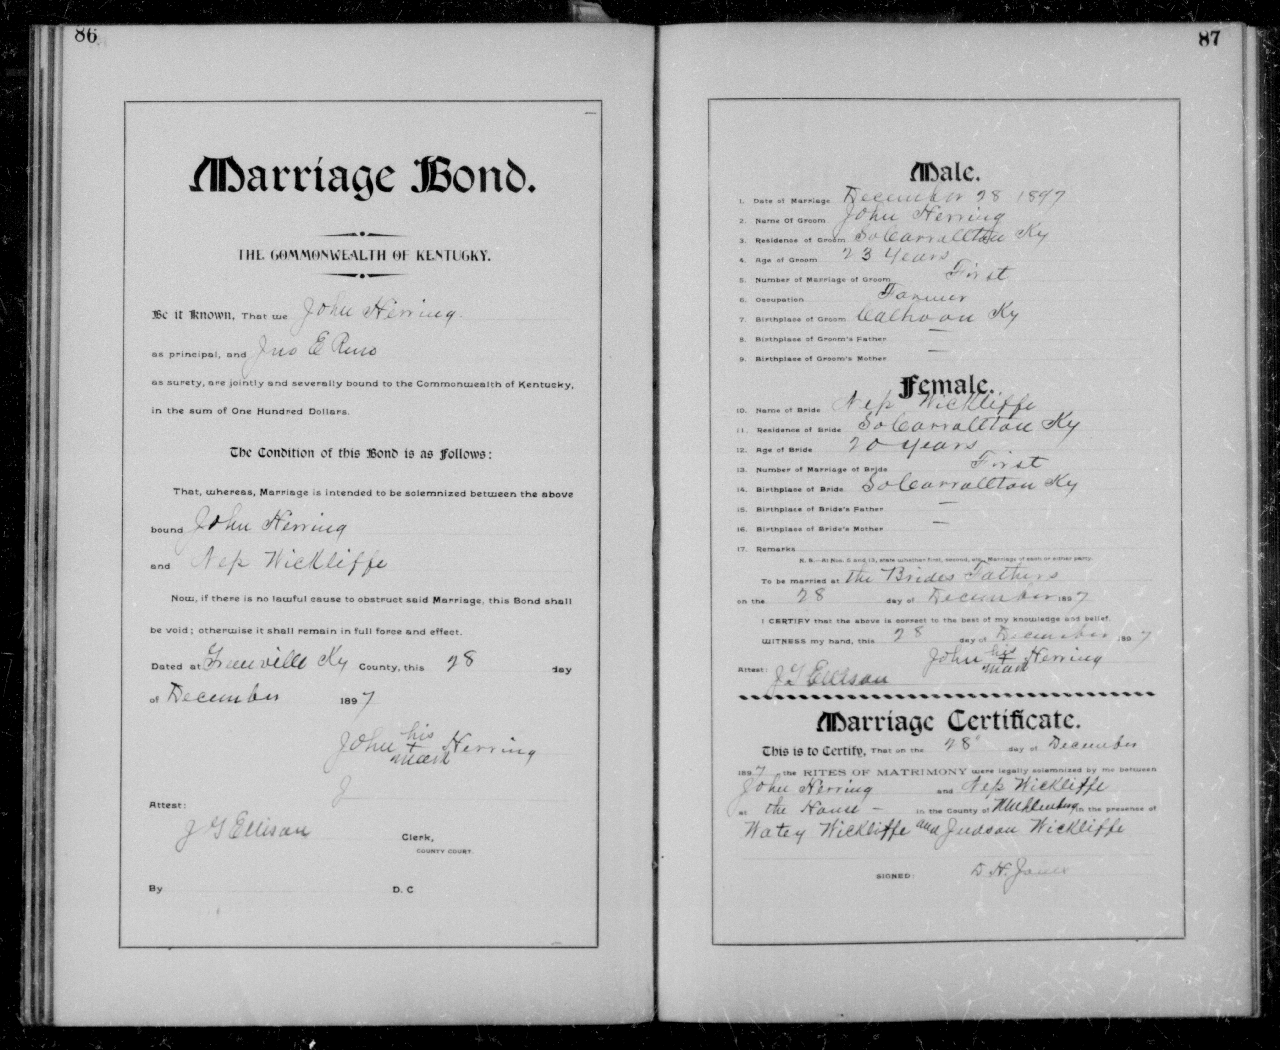 86
Marriage Bond.
THE COMMONWEALTH OF KENTUCKY.
Be it Known, That we John Herring
as principal, and Jno E Reno
as surety, are jointly and severally bound to the Commonwealth of Kentucky,
in the sum of One Hundred Dollars.
The Condition of this Bond is as Follows:
That, whereas, Marriage is intended to be solemnized between the above
bound John Herring
and Nep Wickliffe
Now, if there is no lawful cause to obstruct said Marriage, this Bond shall
be void; otherwise it shall remain in full force and effect.
Dated at Greenville Ky County, this 28 day
of December 1897
John his + mark Herring
J
Attest:
J G Ellison
Clerk,
COUNTY COURT.
By D. C
87
Male.
1. Date of Marriage December 28 1897
2. Name Of Groom John Herring
3. Residence of Groom So Carrollton Ky
4. Age of Groom 23 years
5. Number of Marriage of Groom First
6. Occupation Farmer
7. Birthplace of Groom Calhoon Ky
8. Birthplace of Groom's Father —
9. Birthplace of Groom's Mother —
Female.
10. Name of Bride Nep Wickliffe
11. Residence of Bride So Carrollton Ky
12. Age of Bride 20 years
13. Number of Marriage of Bride First
14. Birthplace of Bride So Carrollton Ky
15. Birthplace of Bride's Father —
16. Birthplace of Bride's Mother —
17. Remarks
N. B.—At Nos. 5 and 13, state whether first, second, etc., Marriage of each or either party.
To be married at the Brides Fathers
on the 28 day of December 1897
I CERTIFY that the above is correct to the best of my knowledge and belief.
WITNESS my hand, this 28 day of December 1897
John his + mark Herring
Attest: J G Ellison
Marriage Certificate.
This is to Certify, That on the 28 day of December
1897 the RITES OF MATRIMONY were legally solemnized by me between
John Herring and Nep Wickliffe
at the House – in the County of Muhlenburg in the presence of
Watey Wickliffe and Judson Wickliffe
SIGNED: D. H. Jones